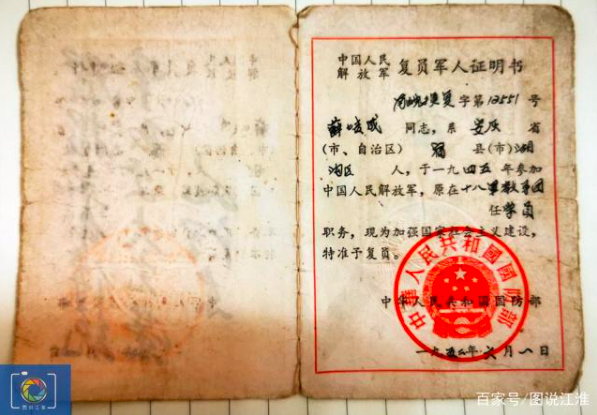 中国人民
解放军 复员军人证明书
复字第12551号
薛峻成 同志,系 安庆 省
(市、自治区) 宿 县(市)湖
沟区 人,于一九四五年参加
中国人民解放军,原在十八军教导团
任学员
职务,现为加强国家社会主义建设,
特准予复员。
中华人民共和国国防部
中華人民共和國國防部
一九五 年 月一日
图说江淮
百家号/图说江淮